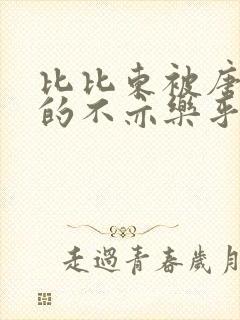 比比東被唐
的不亦樂乎
走過青春歲月